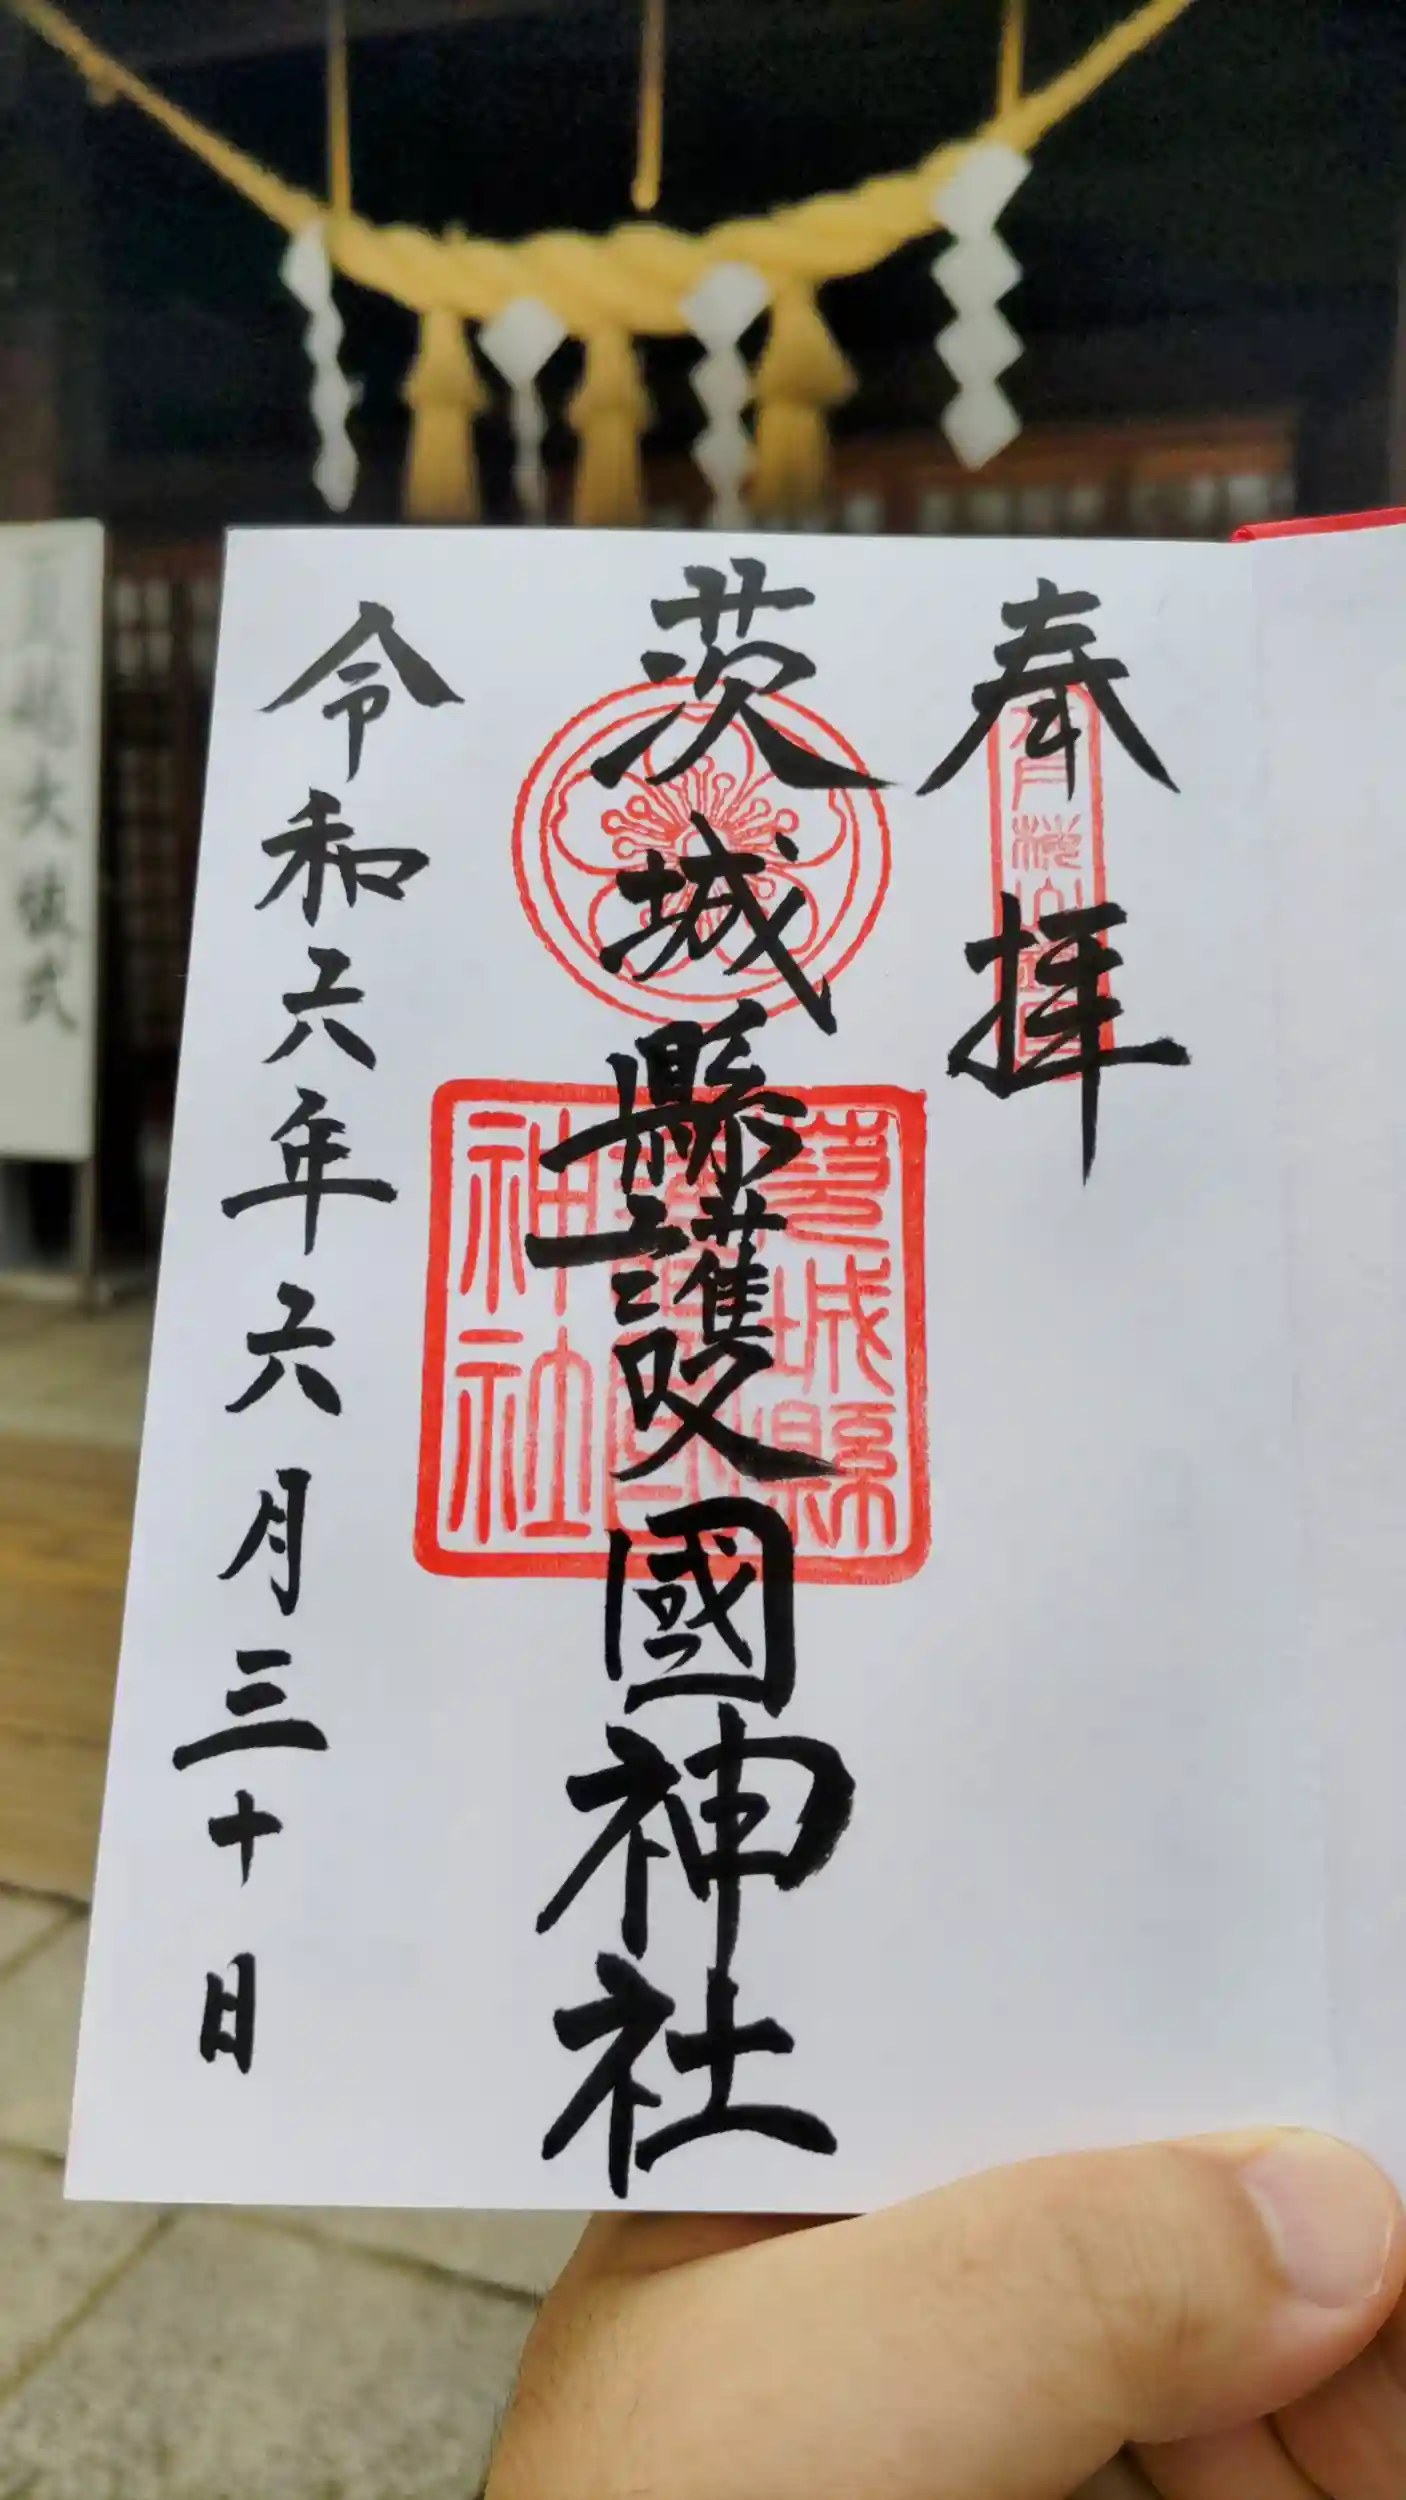 奉拝
茨城縣護國神社
令和六年六月三十日
茨城縣
護國
神社
夏越大祓式